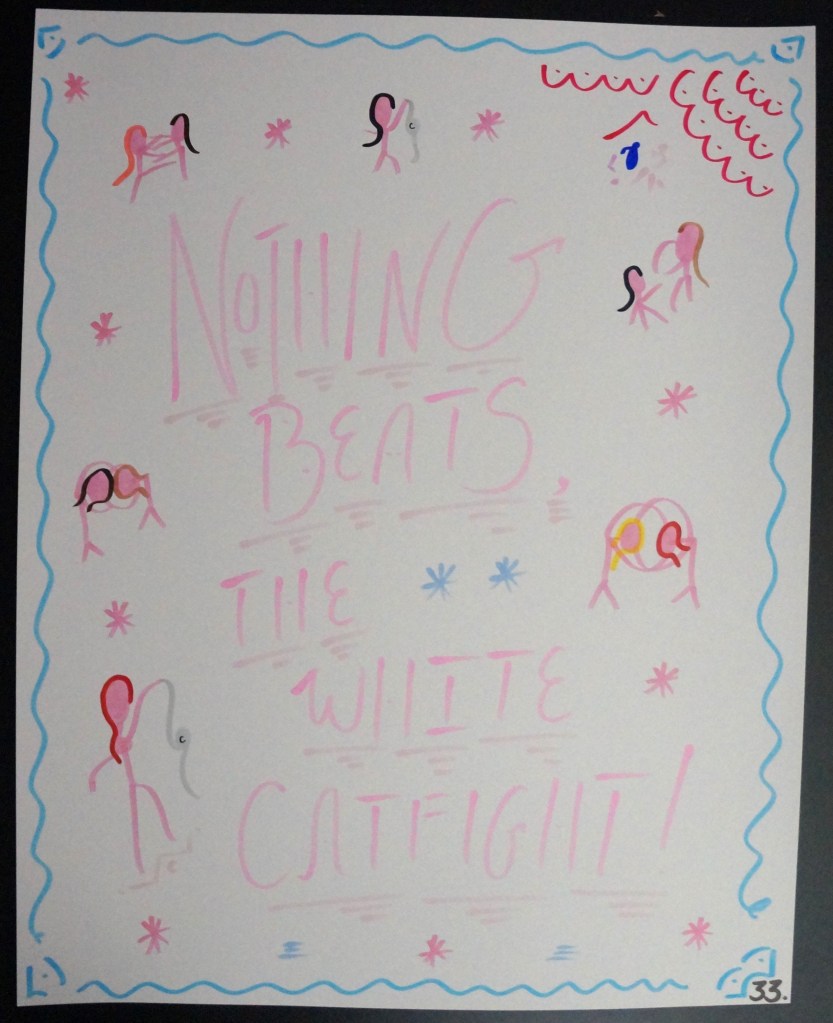 NOTHING
BEATS,
THE
WHITE
CATFIGHT!
33.